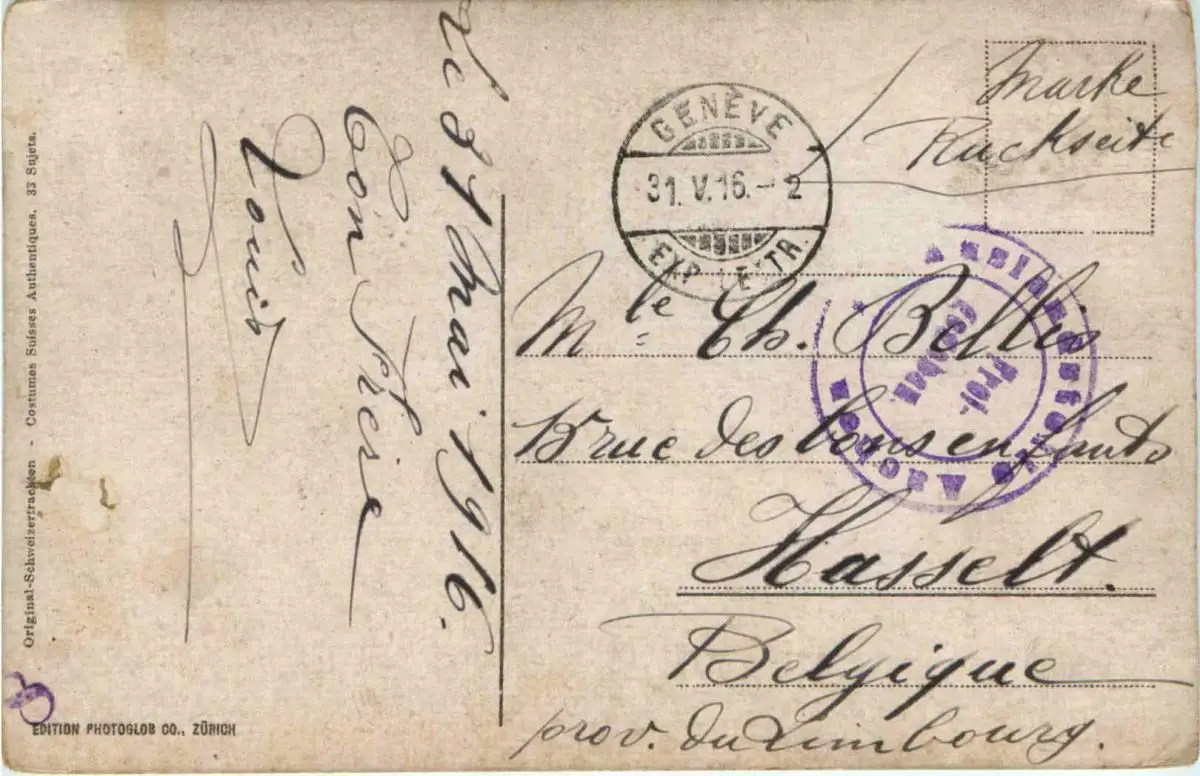 Le 31 Mai 1916.
Ton Frère
Louis
Original-Schweizertrachten - Costumes Suisses Authentiques. 33 Sujets.
EDITION PHOTOGLOB CO., ZÜRICH
GENÈVE
31. V. 16. - 2
EXP. LETTR.
Marke
Rückseite
Mlle Ch. Bellis
15 rue des bons enfants
Hasselt.
Belgique
prov. du Limbourg.